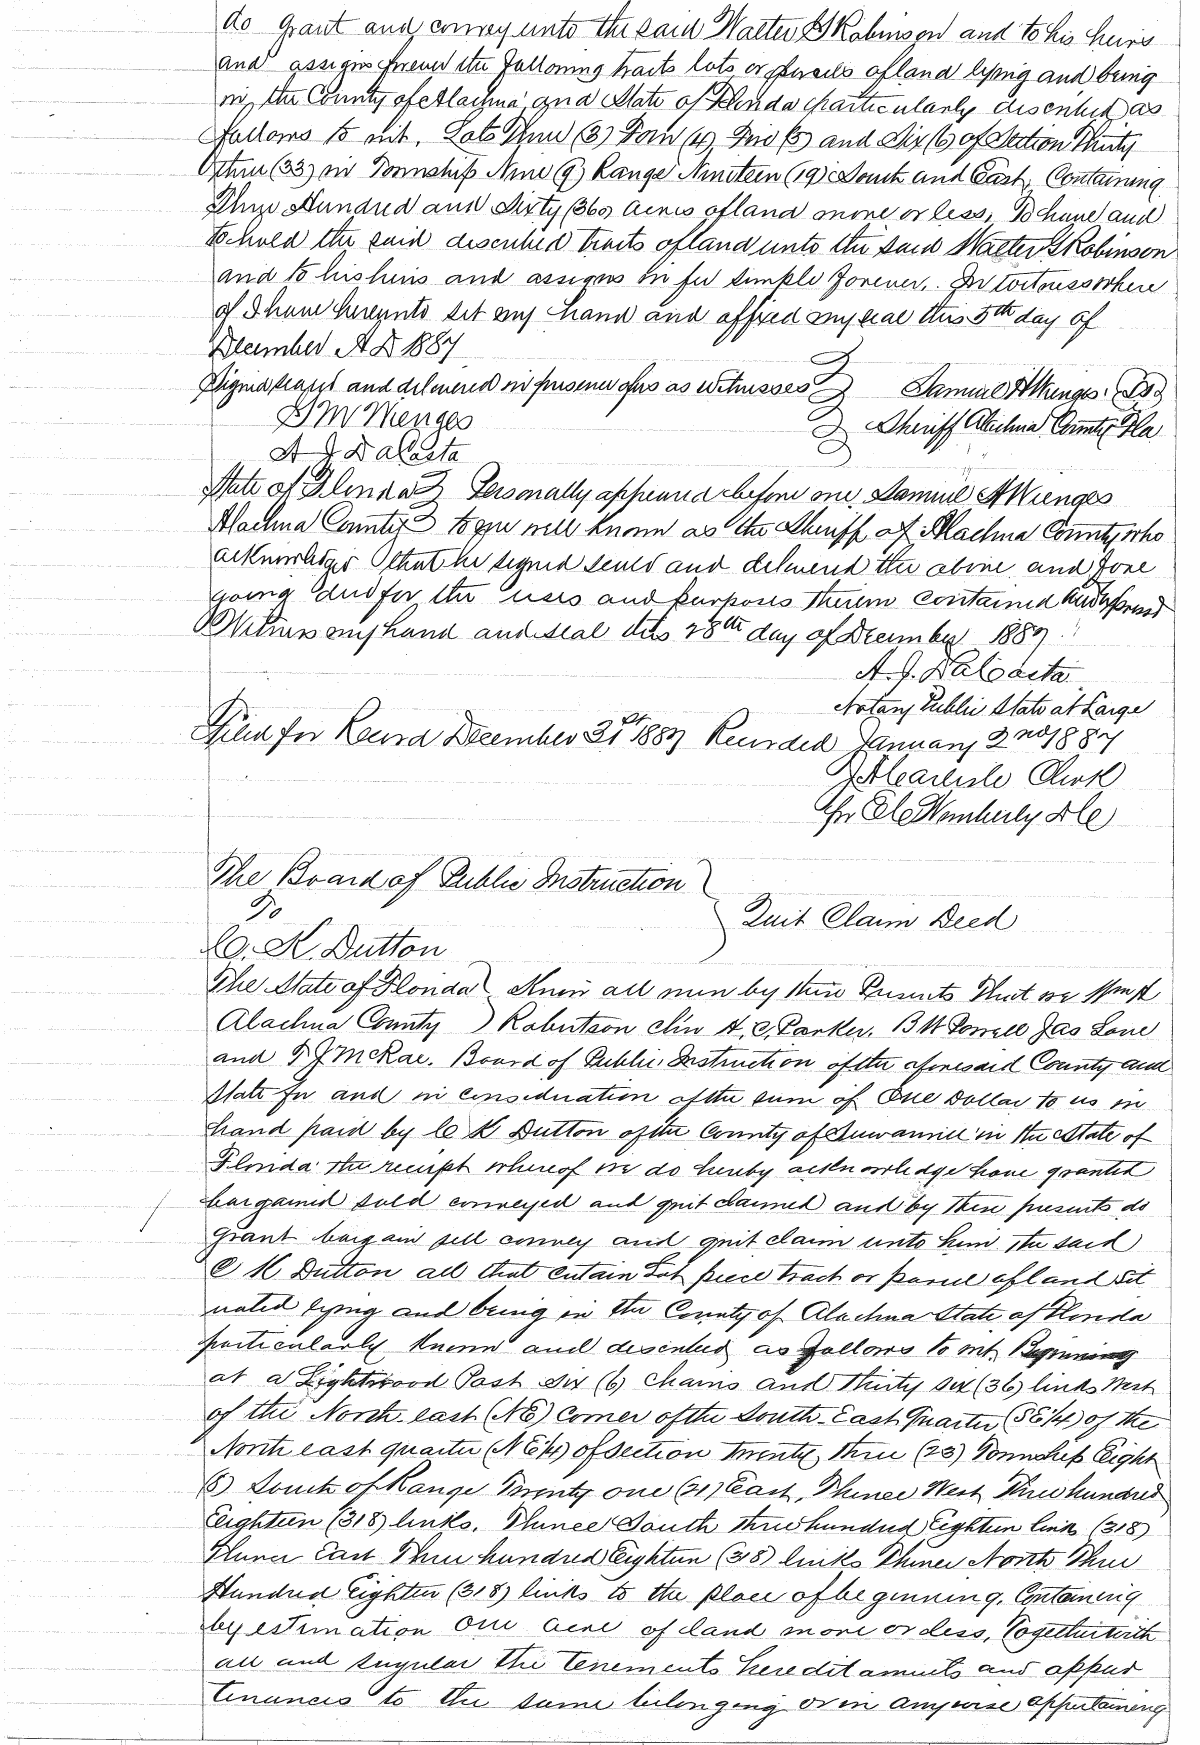 do grant and convey unto the said Walter G Robinson and to his heirs
and assigns forever the following tracts lots or parcels of land lying and being
in the County of Alachua and State of Florida particularly described as
follows to wit. Lots Three (3) Four (4) Five (5) and Six (6) of Section Thirty
three (33) in Township Nine (9) Range Nineteen (19) South and East, Containing
Three Hundred and Sixty (360) acres of land more or less, To have and
to hold the said described tracts of land unto the said Walter G Robinson
and to his heirs and assigns in fee simple forever. In witness where
of I have hereunto set my hand and affixed my seal this 5th day of
December A D 1887
Signed sealed and delivered in presence of us as witnesses Samuel H Wienges (LS)
G M Wienges Sheriff Alachua County Fla
A J DaCosta
State of Florida Personally appeared before me, Samuel H Wienges
Alachua County to me well known as the Sheriff of Alachua County, who
acknowledges that he signed seald and delivered the above and fore
going deed for the uses and purposes therein contained and expressed
Witness my hand and seal this 28th day of December 1887
A. J. DaCosta
Notary Public State at Large
Filed for Record December 31st 1887 Recorded January 2nd 1887
J A Carlisle Clerk
pr E C Wimberly D C
The Board of Public Instruction
To
Quit Claim Deed
C. K. Dutton
The State of Florida Know all men by these Presents That we Wm A
Alachua County Robertson chm H. C. Parker. B W Powell Jas Love
and T J McRae. Board of Public Instruction of the aforesaid County and
State for and in consideration of the sum of One Dollar to us in
hand paid by C K Dutton of the County of Suwannee in the State of
Florida the receipt whereof we do hereby acknowledge have granted
bargained sold conveyed and quit claimed and by these presents do
grant bargain sell convey and quit claim unto him the said
C K Dutton all that certain Lot piece tract or parcel of land Sit
uated lying and being in the County of Alachua State of Florida
particularly known and described as follows to wit, Beginning
at a Lightwood Post six (6) chains and thirty six (36) links West
of the North-east (NE) corner of the South-East Quarter (SE¼) of the
North east quarter (NE¼) of section twenty three (23) Township Eight
(8) South of Range Twenty one (21) East, Thence West Three hundred
Eighteen (318) links, Thence South three hundred Eighteen links (318)
Thence East Three hundred Eighteen (318) links Thence North Three
Hundred Eighteen (318) links to the place of beginning. Containing
by estimation one acre of land more or less, Together with
all and singular the tenements hereditaments and appur
tenances to the same belonging or in anywise appertaining